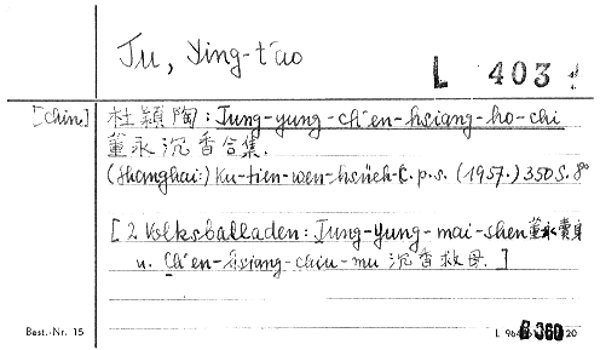 Tu, Ying-t'ao
L 403
[Chin.] 杜穎陶: Tung-yung-ch'en-hsiang-ho-chi
董永沉香合集.
(Shanghai:) Ku-tien-wen-hsüeh-c.p.s. (1957.) 350 S. 8°
[2 Volksballaden: Tung-Yung-mai-shen 董永賣身
u. Ch'en-hsiang-chiu-mu 沉香救母.]
Best.-Nr. 15
B 360 20